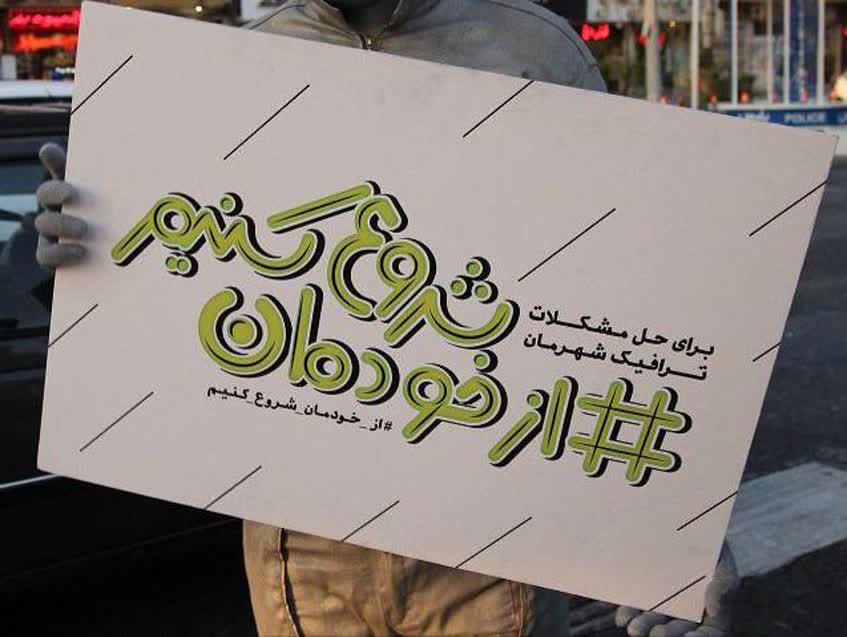 برای حل مشکلات
ترافیک شهرمان
#از خودمان
شروع کنیم
#از_خودمان_شروع_کنیم
POLICE